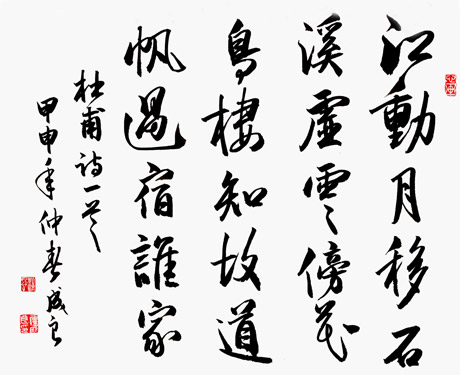 江動月移石
溪虛雲傍花
鳥棲知故道
帆過宿誰家
杜甫诗一首
甲申年仲春成